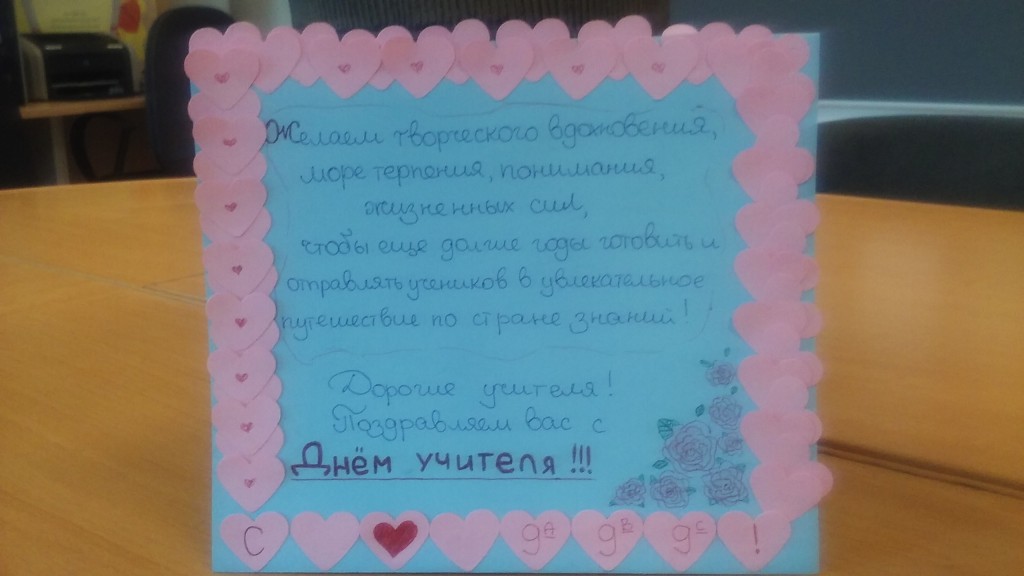 Желаем творческого вдохновения,
море терпения, понимания,
жизненных сил,
чтобы еще долгие годы готовить и
отправлять учеников в увлекательное
путешествие по стране знаний!
Дорогие учителя!
Поздравляем вас с
Днём учителя!!!
С 9А 9В 9С !